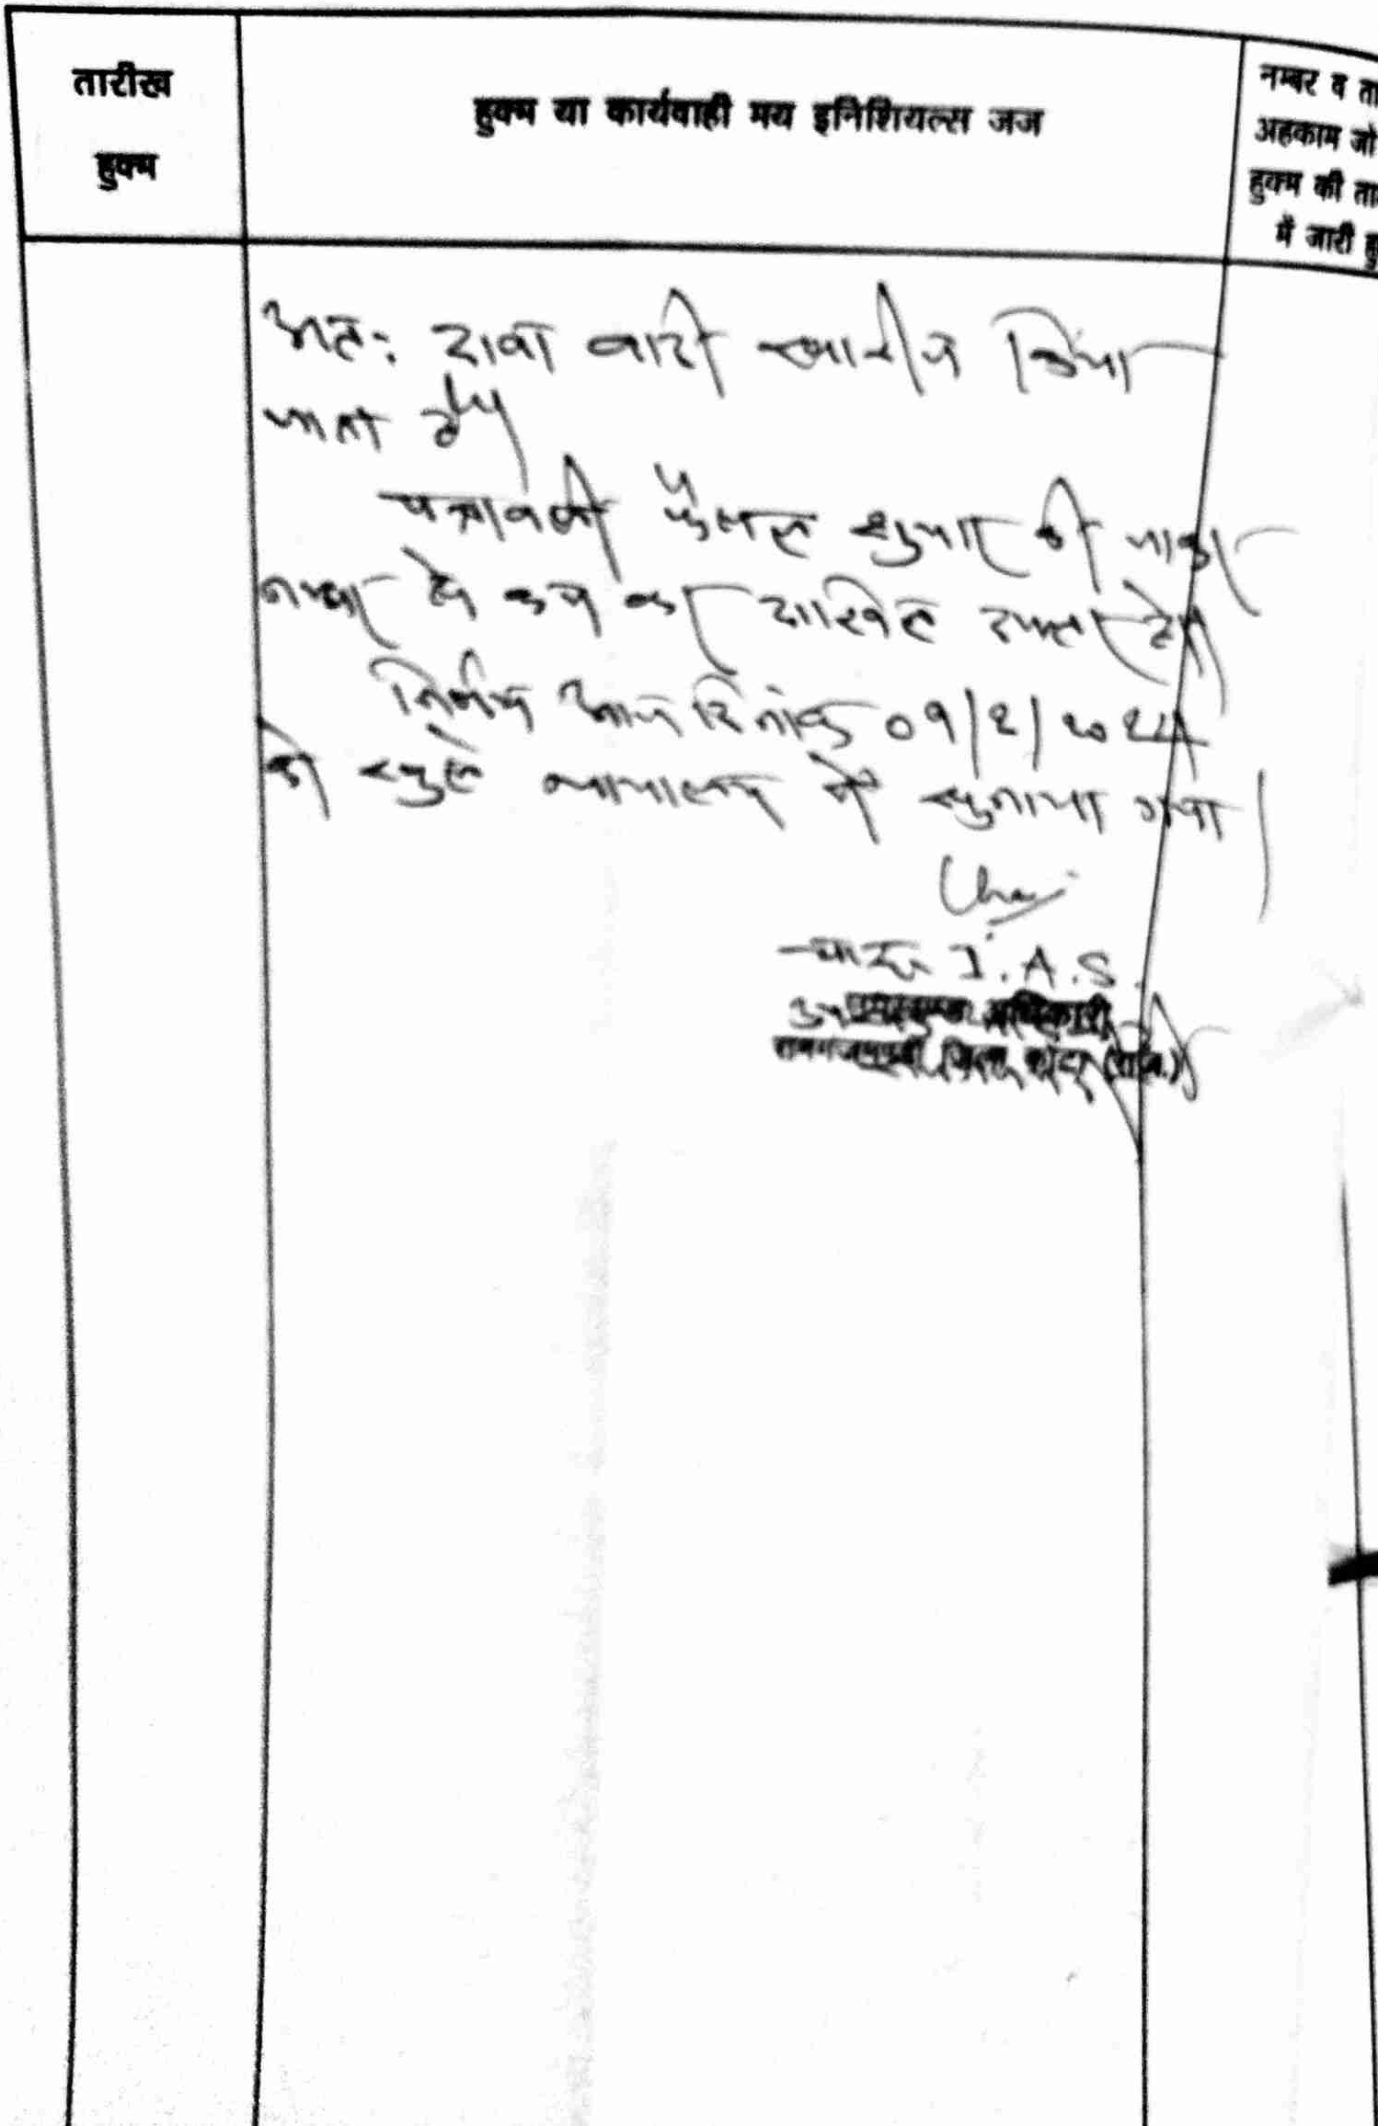 तारीख
हुक्म
हुक्म या कार्यवाही मय इनिशियल्स जज
नम्बर व ता
अहकाम जो
हुक्म की ता
में जारी हु
अतः दावा वादी खारीज किया
जाता है।
पत्रावली फैसल शुमार की जाकर
नम्बर से कम कर दाखिल दफ्तर हो।
निर्णय आज दिनांक
को खुले न्यायालय में सुनाया गया।
चारु I.A.S.
उपखण्ड अधिकारी
रामगंजमण्डी जिला कोटा (राज.)